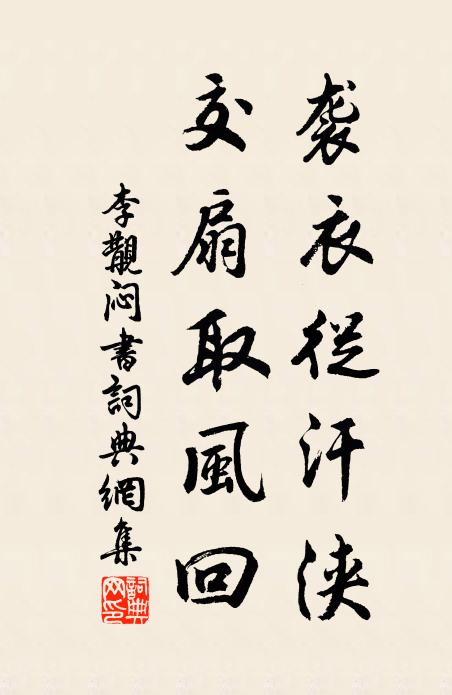 袭衣從汗浹
交扇取風回
李覯闷書詞典網集
詞典
网印